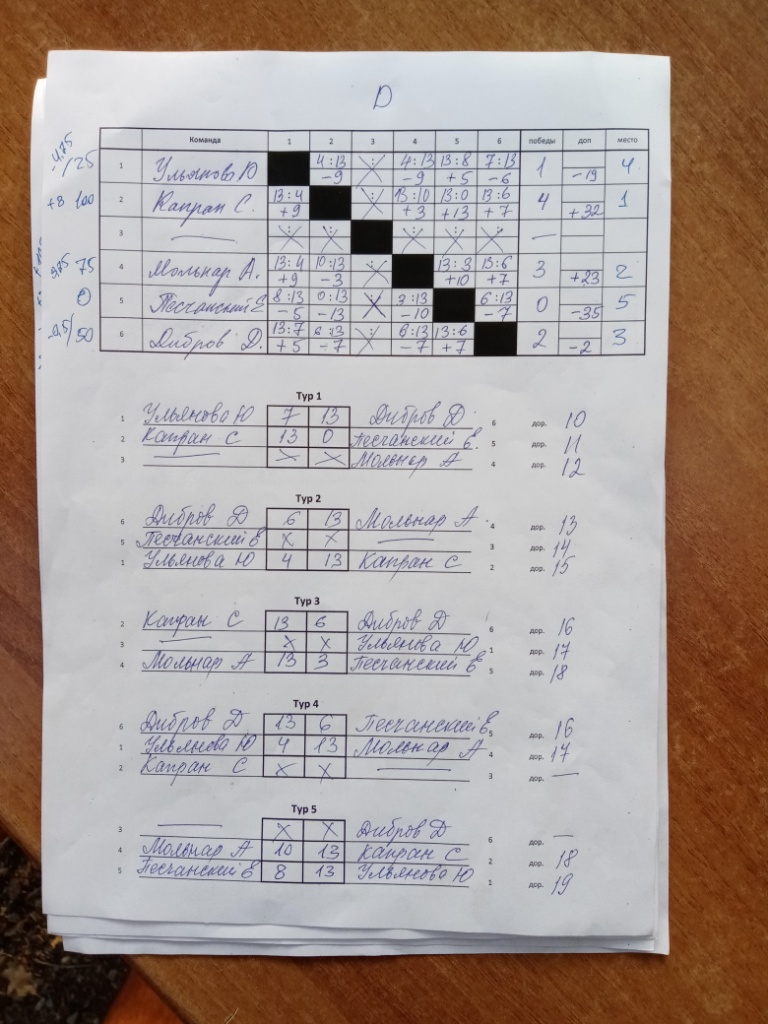 D
Команда 1 2 3 4 5 6 победы доп место
-4,75 /25 1 Ульянова Ю 4:13 -9 : 4:13 -9 13:8 +5 7:13 -6 1 -19 4
+8 100 2 Капран С. 13:4 +9 : 13:10 +3 13:0 +13 13:6 +7 4 +32 1
3 — : : : : : —
75 4 Мольнар А. 13:4 +9 10:13 -3 : 13:3 +10 13:6 +7 3 +23 2
0 5 Песчанский Е 8:13 -5 0:13 -13 : 3:13 -10 6:13 -7 0 -35 5
-0,5/50 6 Дибров Д. 13:7 +5 6:13 -7 : 6:13 -7 13:6 +7 2 -2 3
Тур 1
1 Ульянова Ю 7 13 Дибров Д 6 дор. 10
2 Капран С 13 0 Песчанский Е. 5 дор. 11
3 — X X Мольнар А 4 дор. 12
Тур 2
6 Дибров Д 6 13 Мольнар А 4 дор. 13
5 Песчанский Е X X — 3 дор. 14
1 Ульянова Ю 4 13 Капран С 2 дор. 15
Тур 3
2 Капран С 13 6 Дибров Д 6 дор. 16
3 — X X Ульянова Ю 1 дор. 17
4 Мольнар А 13 3 Песчанский Е 5 дор. 18
Тур 4
6 Дибров Д 13 6 Песчанский Е. 5 дор. 16
1 Ульянова Ю 4 13 Мольнар А 4 дор. 17
2 Капран С X X — 3 дор. —
Тур 5
3 — X X Дибров Д 6 дор. —
4 Мольнар А 10 13 Капран С 2 дор. 18
5 Песчанский Е 8 13 Ульянова Ю 1 дор. 19